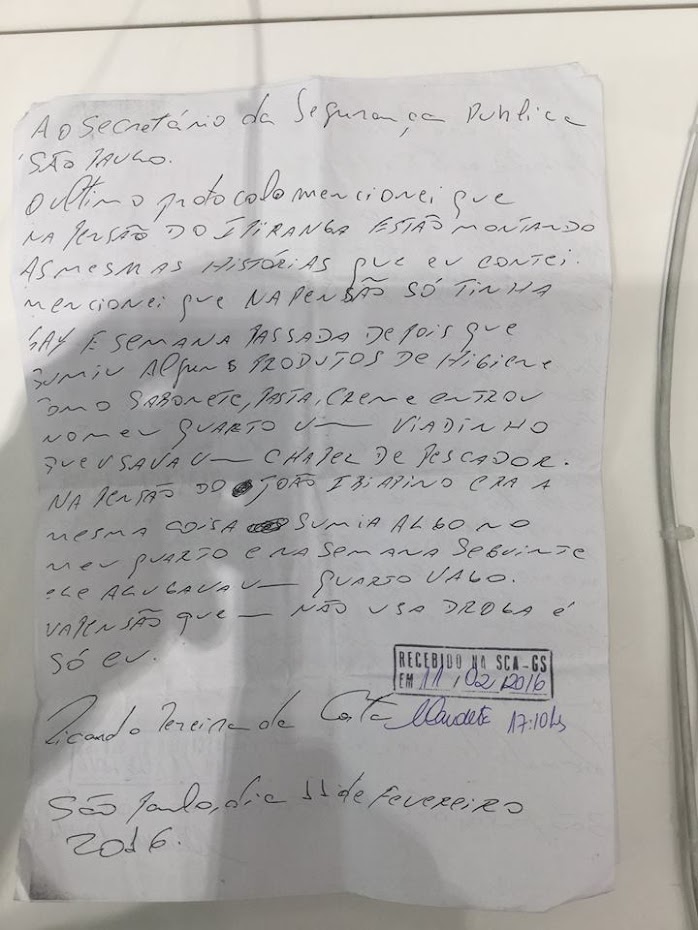 Ao Secretário da Segurança Publica
São Paulo.
O ultimo protocolo mencionei que
NA PENSÃO DO IPIRANGA ESTÃO MONTANDO
AS MESMAS HISTÓRIAS que eu CONTEI.
mencionei que NA PENSÃO SÓ TINHA
GAY E SEMANA PASSADA DEPOIS que
SUMIU Alguns PRODUTOS DE HIGIENE
COMO SABONETE, PASTA, CREME ENTROU
NO MEU QUARTO U— VIADINHO
QUE USAVA U— CHAPEL DE PESCADOR.
NA PENSÃO DO JOÃO IBIAPINO ERA A
MESMA COISA SUMIA ALGO NO
MEU QUARTO E NA SEMANA SEGUINTE
ELE ALUGAVA U— QUARTO VAGO.
NA PENSÃO que— NÃO USA DROGA É
SÓ EU.
RECEBIDO NA SCA-GS
EM 11/02/2016
Ricardo Pereira da Costa Claudete 17:10hs
São Paulo, dia 11 de Fevereiro
2016.